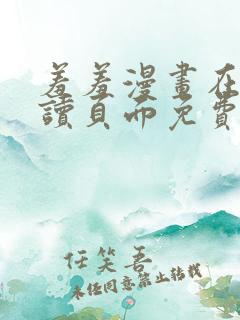 羞羞漫畫在
讀頁面免費
任笑吾
未经同意禁止转载